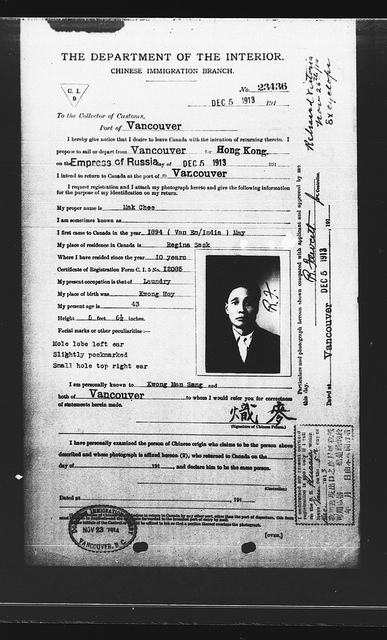 THE DEPARTMENT OF THE INTERIOR.
CHINESE IMMIGRATION BRANCH.
C. I.
9
No. 23436
DEC 5 1913 191
To the Collector of Customs,
Port of Vancouver
I hereby give notice that I desire to leave Canada with the intention of returning thereto. I
propose to sail or depart from Vancouver for Hong Kong.
on the Empress of Russia day of DEC 5 1913 191
I intend to return to Canada at the port of Vancouver
I request registration and I attach my photograph hereto and give the following information
for the purpose of my identification on my return.
My proper name is Mak Chee
I am sometimes known as
I first came to Canada in the year 1894 ( Van Em/India ) May
My place of residence in Canada is Regina Sask
Where I have resided since the year 10 years
Certificate of Registration Form C. I. 5 No. 12085
My present occupation is that of Laundry
My place of birth was Kwong Hoy
My present age is 43
Height 5 feet inches.
Facial marks or other peculiarities :—
Mole lobe left ear
Slightly pockmarked
Small hole top right ear
R.F.
I am personally known to Kwong Man Sang and
both of Vancouver to whom I would refer you for correctness
of statements herein made.
(Signature of Chinese Person.)
I have personally examined the person of Chinese origin who claims to be the person above
described and whose photograph is affixed hereon (X), who returned to Canada on the
day of 191 , and declare him to be the same person.
(Controller.)
Dated at 191
[OVER.]
NOV 23 1914
VANCOUVER, B.C.
Particulars and photograph hereon shown compared with applicant and approved by me
this day.
DEC 5 1913 191
Dated at Vancouver